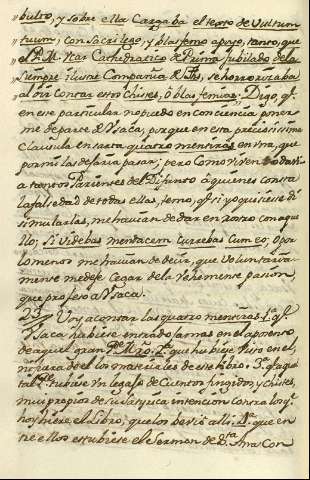 bulto, y sobre ella cargaba el texto de Vultum
„ tuum; con sacrilego, y blasfemo apoyo, tanto, que
„ el P. M. Cathedratico de Prima jubilado de la
„ siempre ilustre Compañia de Jhs, se horrorizaba
„ al oir contar estos chistes, ò blasfemias. Digo, q.
en este particular no puedo en conciencia poner
me de parte de Ysaca, porque en esta preciosissima
clausula ensarta quatro mentiras en una, que
por mi las dejaria pasar; pero como viven todavia
tantos Parientes del Difunto à quienes consta
la falsedad de todas ellas, temo, q. si yo quisiese di
simularlas, me havian de dar en rostro con aque
llo; Si videbas mentacem currebas cum eo; ò por
lo menos me havian de decir, que voluntaria
mente me dejè cegar de la vehemente pasion,
que profeso à Ysaca.
23. Voy à contar las quatro mentiras. 1.a q.
Ysaca hubiese entrado jamas en el aposento
de aquel gran P.e Mro. 2.a que hubiese visto en el,
ni parado el los materiales de este libro. 3.a q. aquel
tal P.e tubiese un legajo de Cuentos fingidos, y chistes,
mui propios de su satyrica intencion contra los q.
hoy hiere el Libro, que los leyò alli. 4.a que en
tre ellos estubiese el Sermon de S.ta Ana con